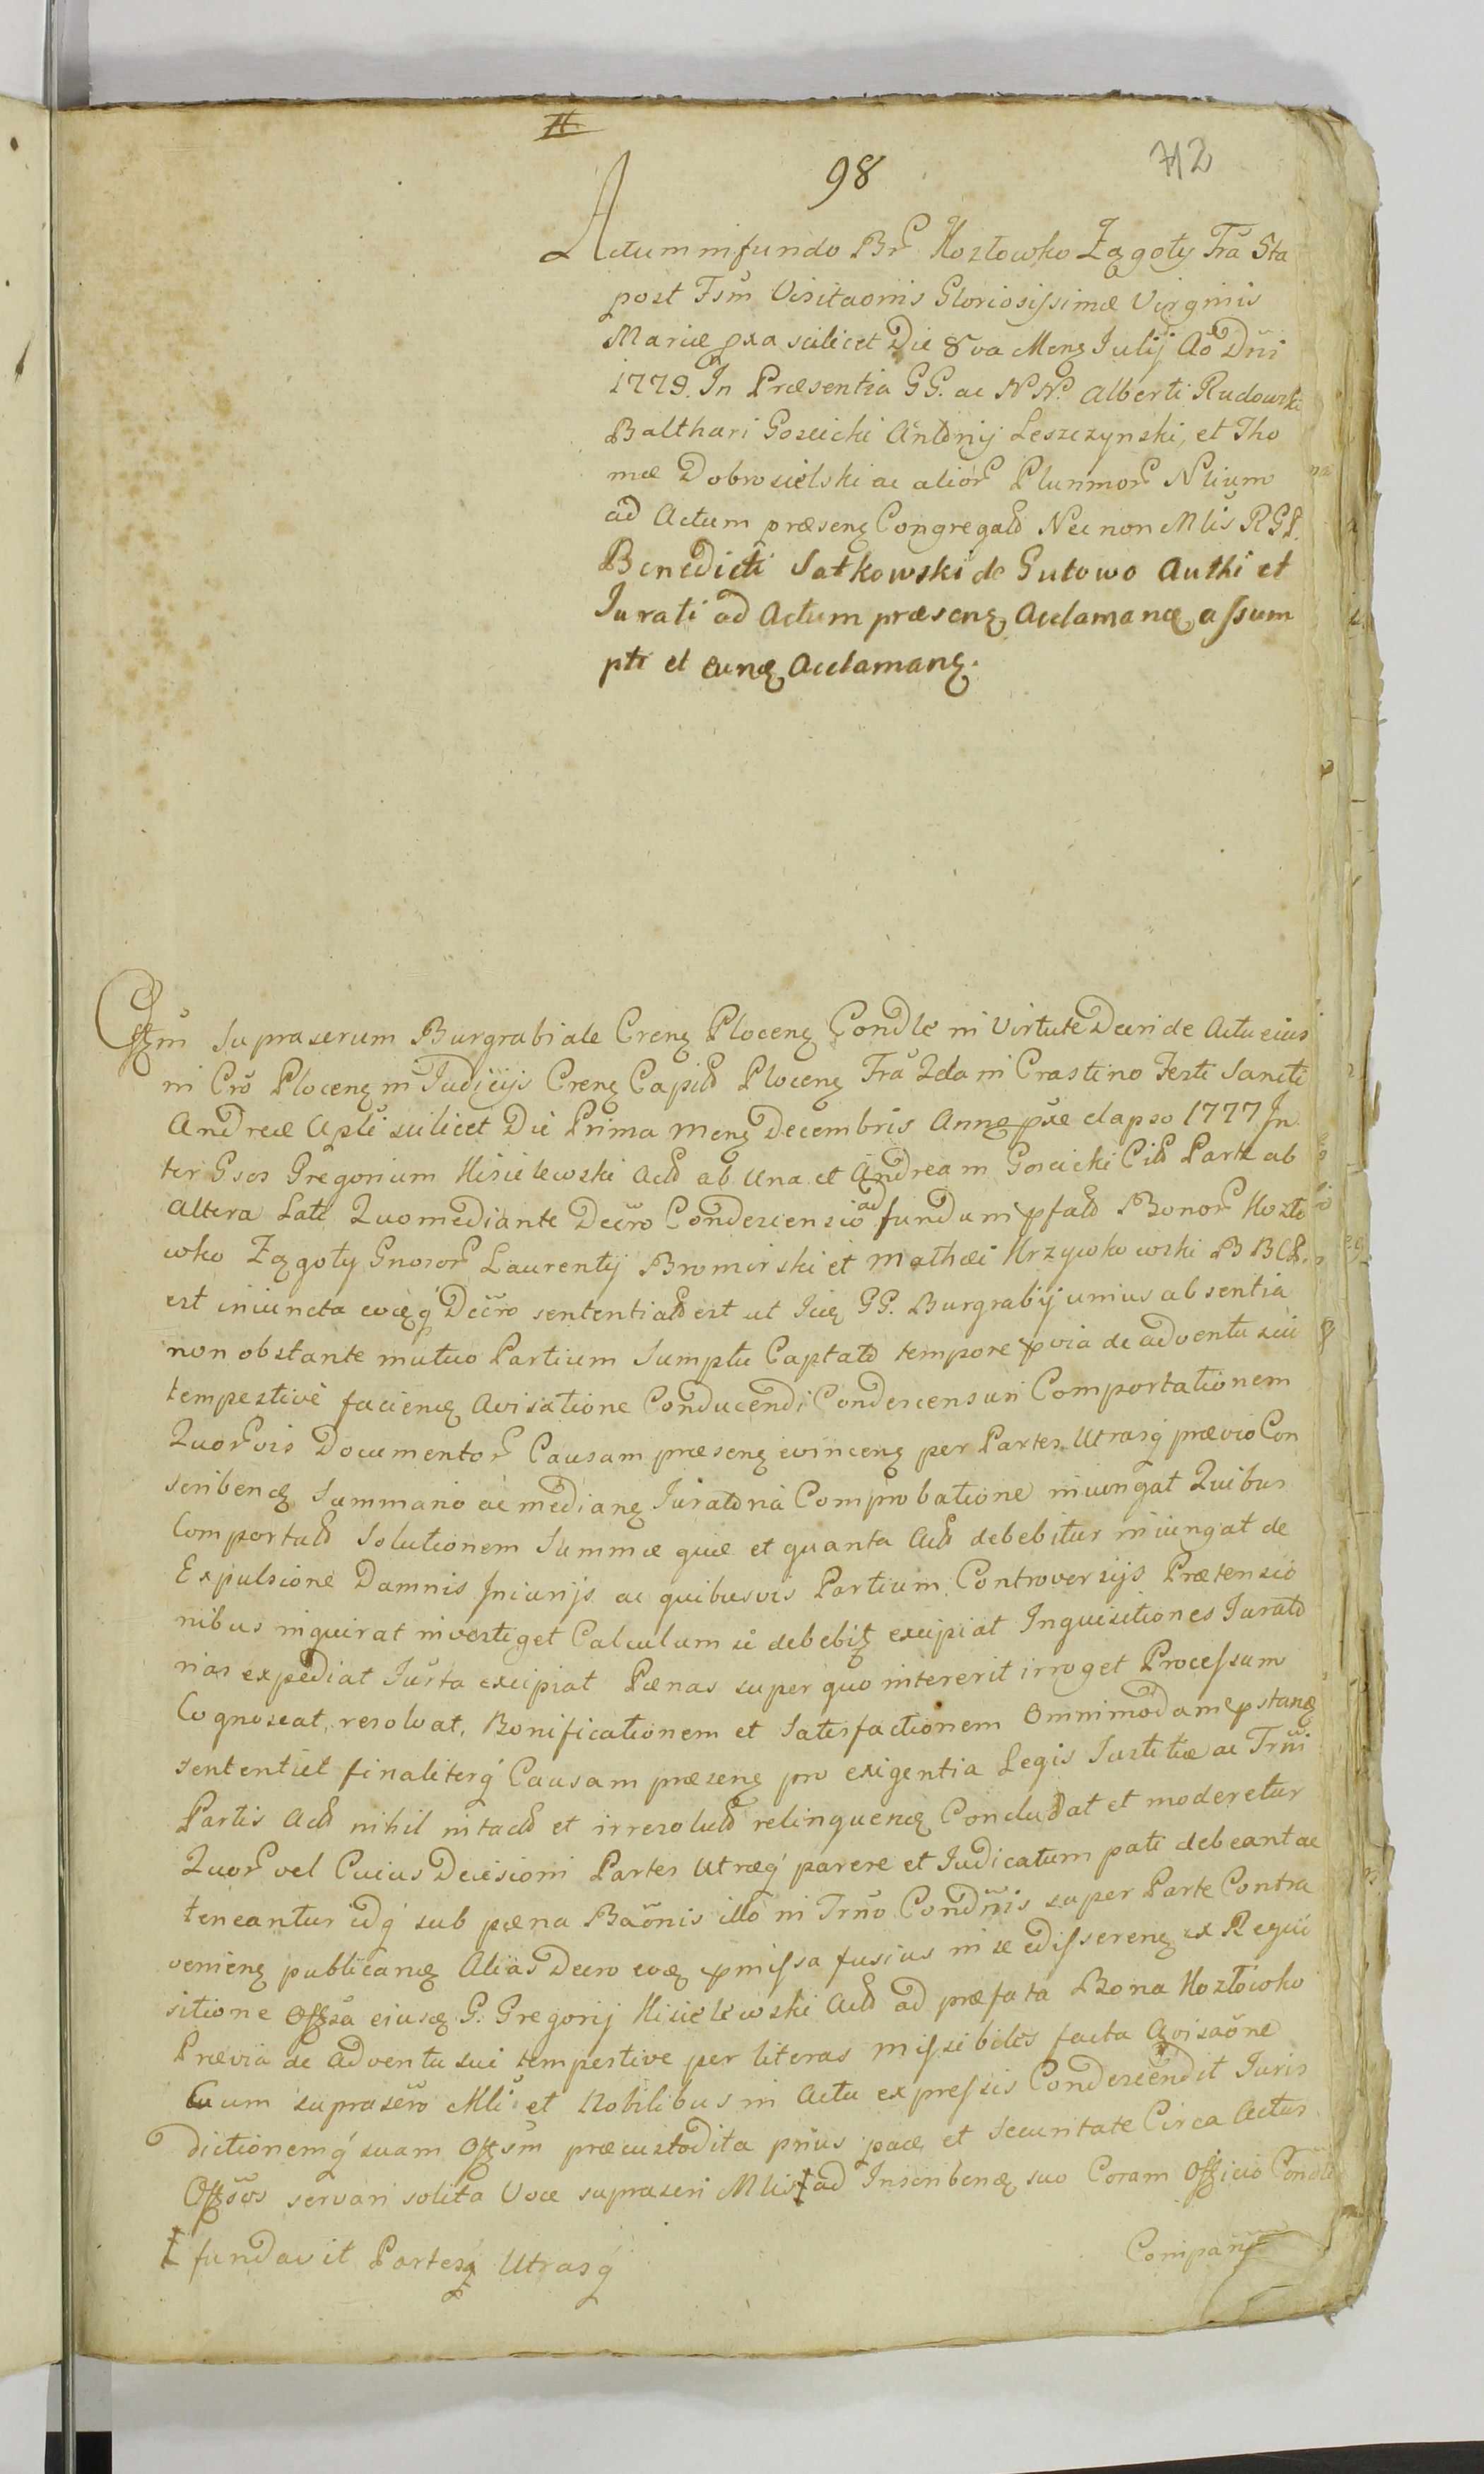 98
712
Actum in fundo Br Kozłowko Zągoty Fra 5ta
post Fsm Visitaonis Gloriosissimæ Virginis
Mariæ pxa scilicet Die 8va Mens Julij Ao Dni
1779. In Præsentia GG. ac NN. Alberti Rudowski
Balthari Goscicki Antonij Leszczynski, et Tho
mæ Dobrosielski ac alior Plurimor Nlium
ad Actum præsens Congregato Nec non Mlis RGL
Benedicti Satkowski de Gutowo Authi et
Jurati ad Actum præsens Acclamand assum
pti et eund Acclamans.
Offm suprascrum Burgrabiale Crens Plocens Condle in Virtute Decri de Actu eius
in Cro Plocens in Judicijs Crens Capitl Plocens Fra 2da in Crastino Festi Sancti
Andreæ Apli scilicet Die Prima Mens Decembris Anno pxe elapso 1777 In
ter Gsos Gregorium Kisielewski Actl ab Una et Andream Goscicki Citl Parte ab
altera Lati Quo mediante Decro Condescensio ad fundum pfatl Bonor Kozło
wko Zągoty Gnosor Laurentij Bromirski et Mathæi Krzywkowski BBCP.
est iniuncta eodq Decro sententiatl est ut Iid GG. Burgrabij unius absentia
non obstante mutuo Partium Sumptu Captato tempore pvia de adventu sui
tempestive faciend Avisatione Conducendi Condescensuri Comportationem
Quorvis Documentor Causam præsens evincens per Partes Utrasq prævio Con
scribend Summario ac medians Juratoria Comprobatione iniungat Quibus
Comportatl Solutionem Summæ quæ et quanta Actl debebitur iniungat de
Expulsione Damnis Iniurijs ac quibusvis Partium Controversijs Prætensio
nibus inquirat investiget Calculum si debebit excipiat Inquisitiones Jurato
rias expediat Jurta excipiat Pænas super quo intererit irroget Processum
Cognoscat, resolvat, Bonificationem et Satisfactionem Omnimodam pstand
sententiet finaliterq Causam præsens pro exigentia Legis Justitiæ ac Trni
Partis Actl nihil intactl et irresolutl relinquend Concludat et moderetur
Quor vel Cuius Decisioni Partes Utræq parere et Judicatum pati debeant ac
teneantur idq sub pæna Baonis illo in Trno Condnis super Parte Contra
veniens publicand Alias Decro eod pmissa fusius in se edisserens ex Requi
sitione Offsa eiusd G. Gregorij Kisielewski Actl ad præfata Bona Kozłowko
Prævia de adventu sui tempestive per literas missibiles facta Avisaone
Cum suprascro Mli et Nobilibus in Actu expressis Condescendit Juris
dictionemq suam Offsm præcustodita prius pace et Securitate Circa Actus
Offsos servari solita Voce suprascri Mlis ad Inscribend suo Coram Officio Condle
fundavit Partesq Utrasq